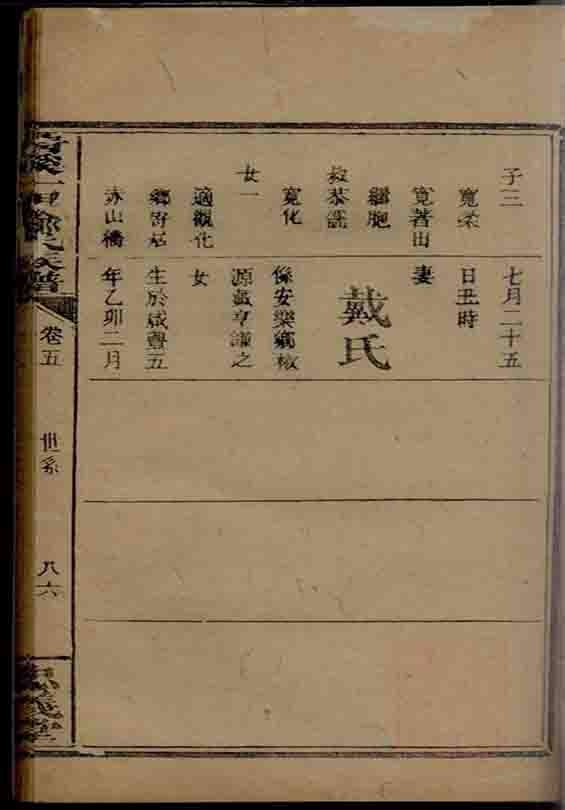 子三
寬柔
寬著出
繼胞
叔恭
寬化
女一
適觀化
鄉
赤山橋
七月二十五
日丑時
妻
戴氏
係安樂鄉核
源戴亨謙之
女
生於咸豐五
年乙卯二月
氏族譜
卷五
世系
八六